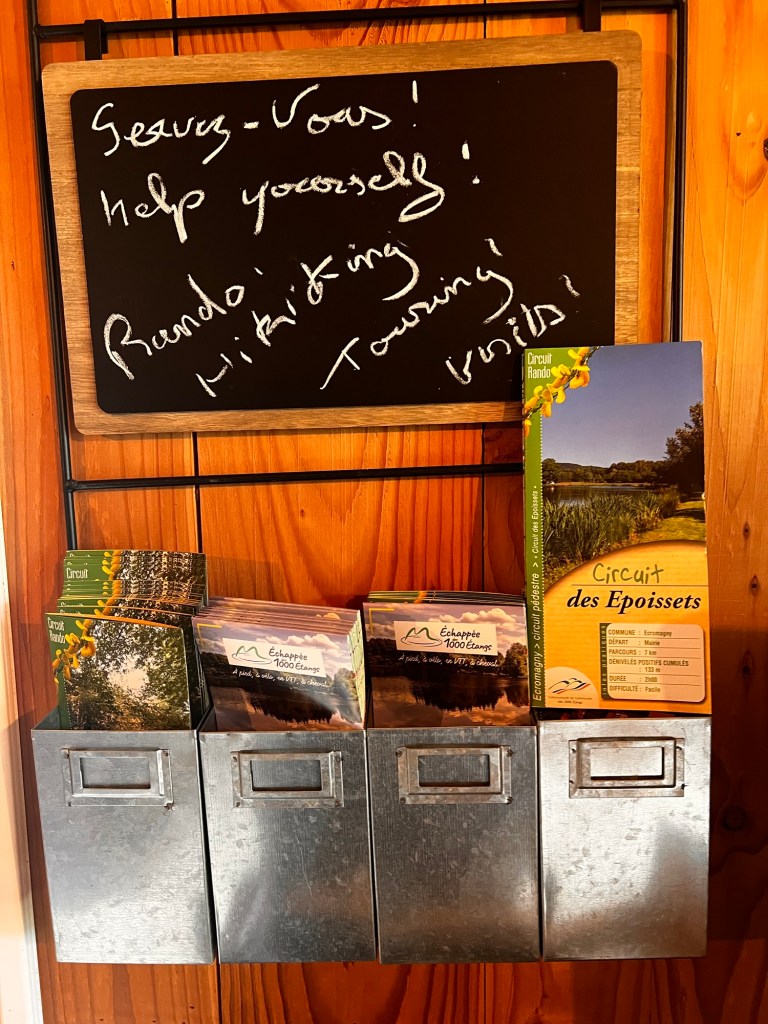 Servez-Vous !
Help yourself !
Rando !
Hikiking
Touring !
visits !
Circuit
Rando
Ecromagny > circuit pédestre > « Circuit des Epoissets »
Circuit
des Epoissets
COMMUNE : Ecromagny
DÉPART : Mairie
PARCOURS : 7 km
DÉNIVELÉS POSITIFS CUMULÉS
: 133 m
DURÉE : 2h00
DIFFICULTÉ : Facile
Circuit
Circuit
Rando
Échappée
en
1000 Étangs
A pied, à vélo, en VTT, à cheval...
Échappée
en
1000 Étangs
A pied, à vélo, en VTT, à cheval...